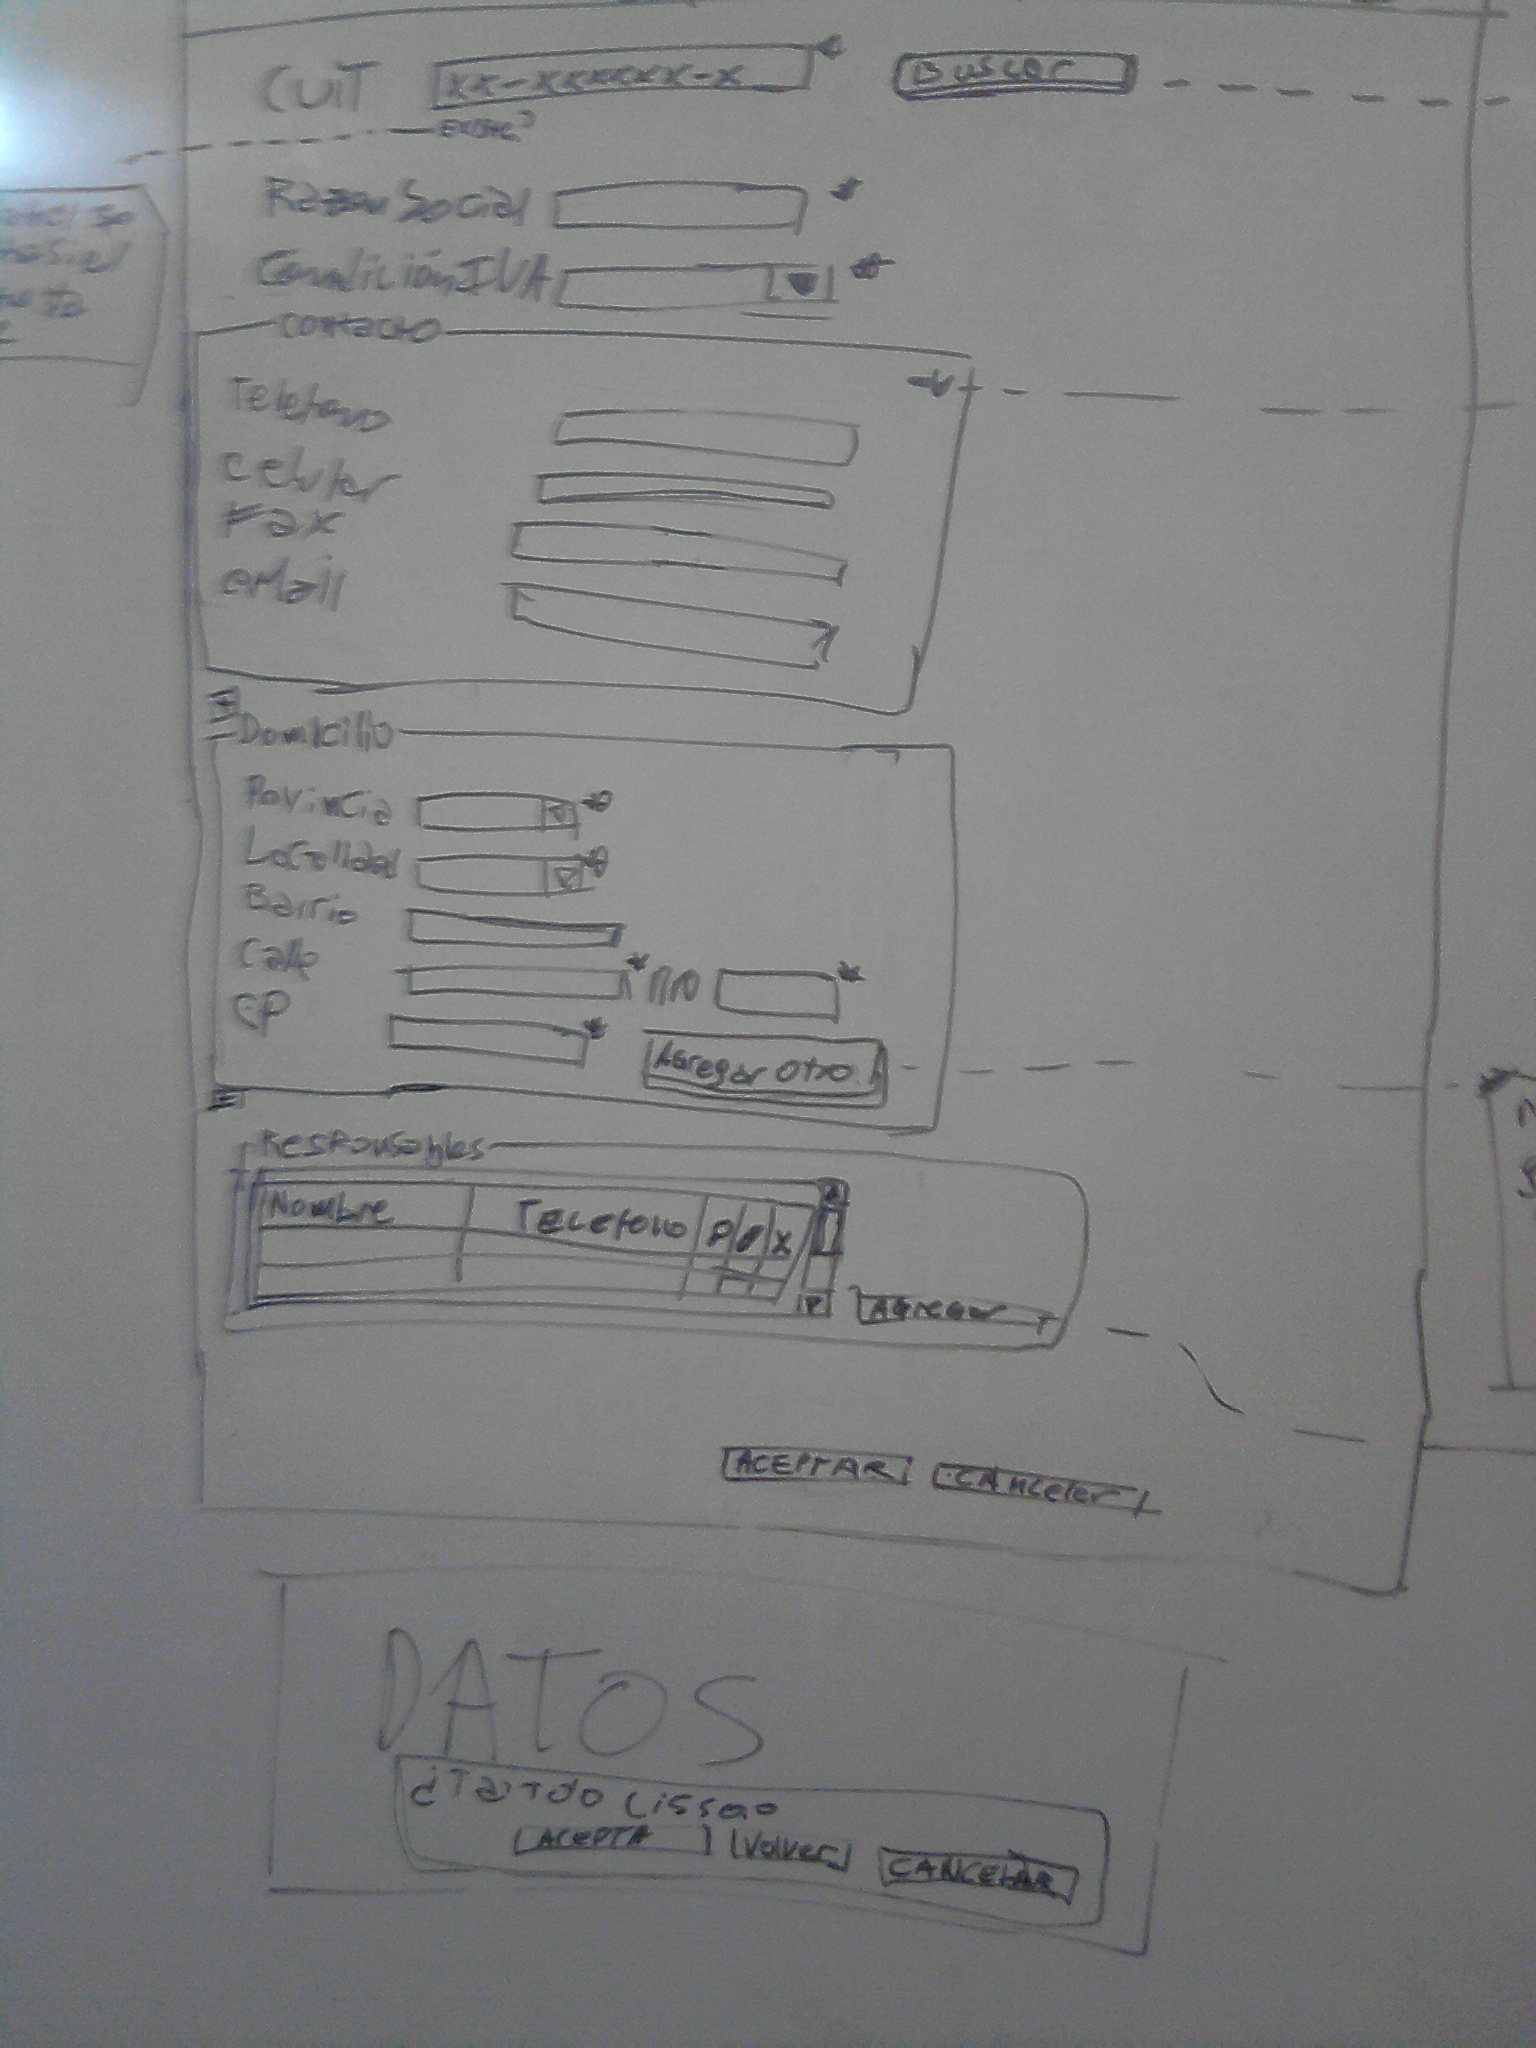 CUIT xx-xxxxxx-x * Buscar
existe?
Razon Social *
Condición IVA *
contacto
Telefono
celular
Fax
email
Domicilio
Povincia *
Localidad *
Barrio
Calle * nro *
CP *
Agregar otro
Responsables
Nombre Telefono P X
Agregar
ACEPTAR CANCELAR
DATOS
ACEPTA Volver CANCELAR